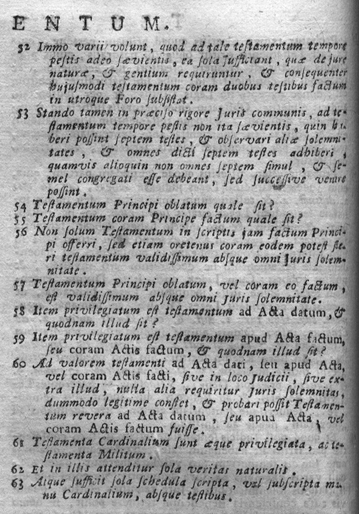 ENTUM.
52 Immo varii volunt, quod ad tale testamentum tempore
pestis adeo sævientis, ea sola sufficiant, quæ de jure
naturæ, & gentium requiruntur, & consequenter
hujusmodi testamentum coram duobus testibus factum
in utroque Foro subsistat.
53 Stando tamen in præciso rigore Juris communis, ad te-
stamentum tempore pestis non ita sævientis, quin ha-
beri possint septem testes, & observari aliæ solemni-
tates, & omnes dicti septem testes adhiberi,
quamvis alioquin non omnes septem simul, & se-
mel congregati esse debeant, sed successivè venire
possint.
54 Testamentum Principi oblatum quale sit?
55 Testamentum coram Principe factum quale sit?
56 Non solum Testamentum in scriptis jam factum Princi-
pi offerri, sed etiam oretenus coram eodem potest fie-
ri testamentum validissimum absque omni Juris solem-
nitate.
57 Testamentum Principi oblatum, vel coram eo factum,
est validissimum absque omni juris solemnitate.
58 Item privilegiatum est testamentum ad Acta datum, &
quodnam illud sit?
59 Item privilegiatum est testamentum apud Acta factum,
seu coram Actis factum, & quodnam illud sit?
60 Ad valorem testamenti ad Acta dati, seu apud Acta,
vel coram Actis facti, sive in loco Judicii, sive ex-
tra illud, nulla alia requiritur Juris solemnitas,
dummodo legitimè constet, & probari possit Testamen-
tum revera ad Acta datum, seu apud Acta, vel
coram Actis factum fuisse.
61 Testamenta Cardinalium sunt æque privilegiata, ac te-
stamenta Militum.
62 Et in illis attenditur sola veritas naturalis.
63 Atque sufficit sola schedula scripta, vel subscripta ma-
nu Cardinalium, absque testibus.